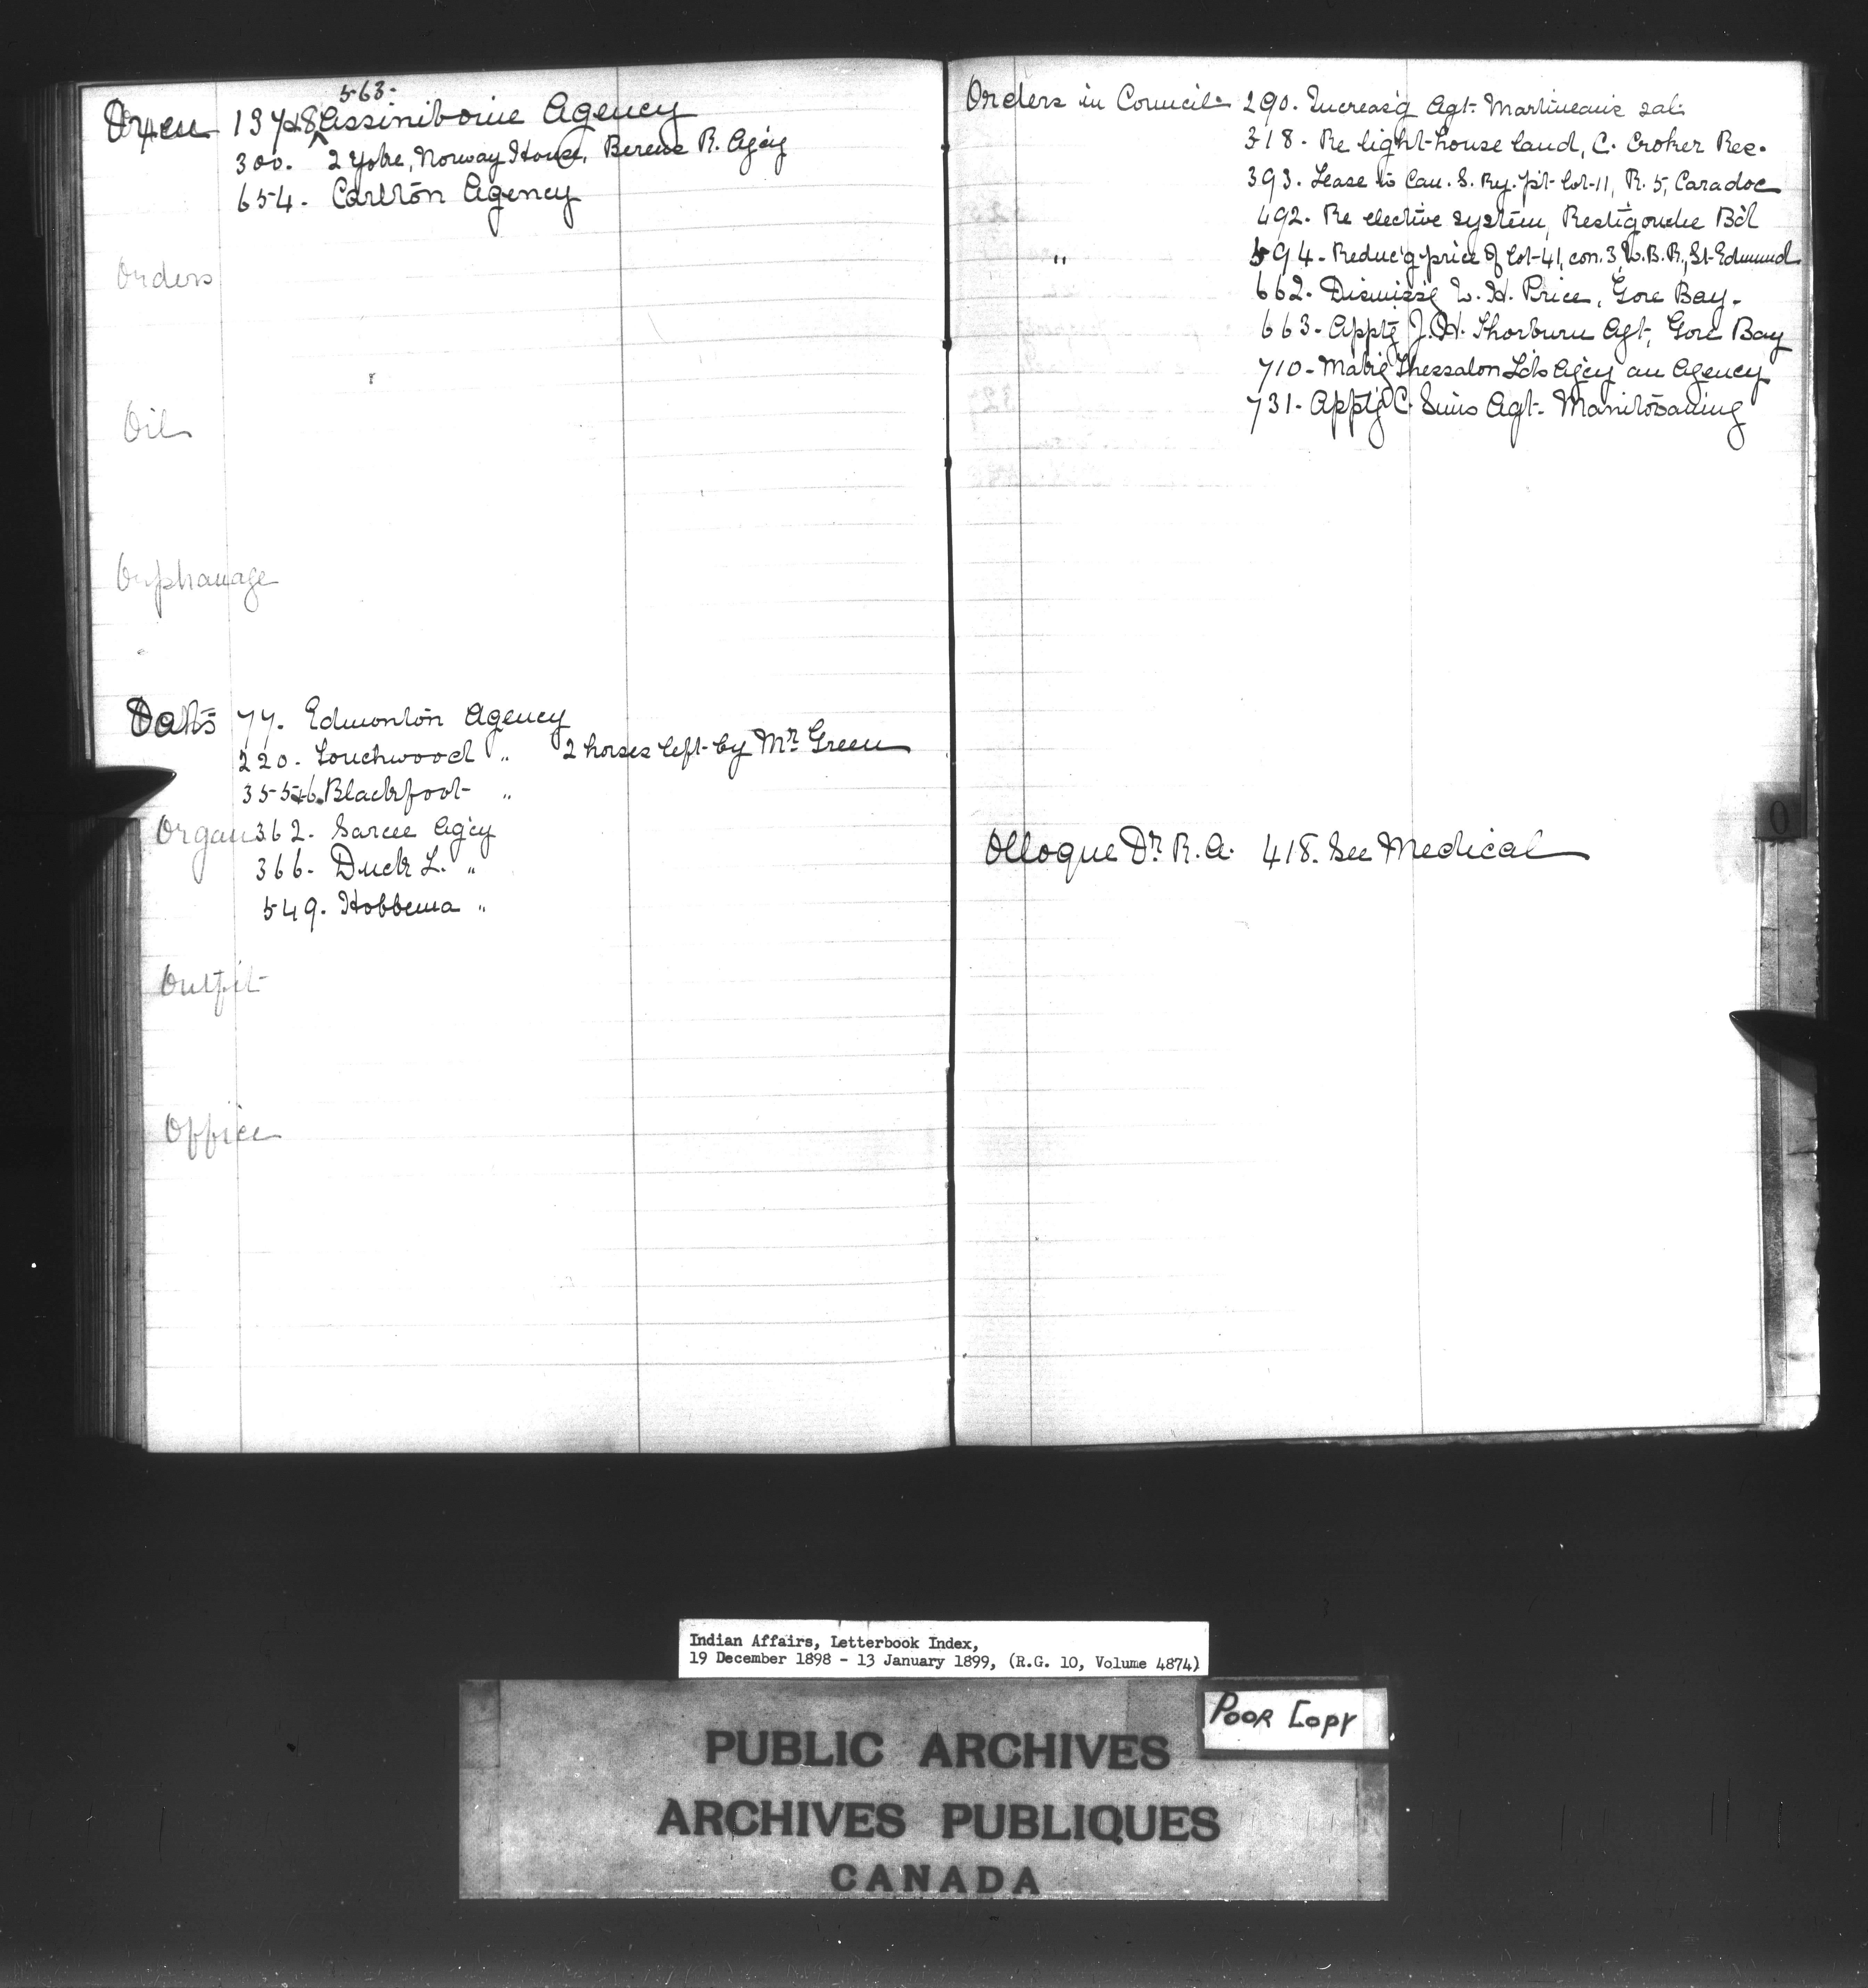 563.
Oxen 137+8 Assiniboine Agency
300. 2 Yoke, Norway House, Berens R. Ag'cy
654. Carlton Agency
Orders
Oil
Orphanage
Oats 77. Edmonton Agency
220. Touchwood " 2 horses left by Mr. Green
355+6. Blackfoot "
Organ 362. Sarcee Ag'cy
366. Duck L. "
549. Hobbema "
Outfit
Office
Orders in Council. 290. Increas'g Agt. Martineau's sal.
318. Re light-house land, C. Croker Res.
393. Lease to Can. S. Ry. pt lot 11, R. 5, Caradoc
492. Re elective system, Restigouche B'd
" 594. Reduc'g price of lot 41, con. 3, W.B.R., St. Edmund
662. Dismiss'g W. H. Price, Gore Bay.
663. Appt'g J. H. Thorburn Agt, Gore Bay
710. Mak'g Thessalon L'ds Ag'cy an Agency
731. Appt'g C. Sims Agt. Manitowaning
O
Olloque Dr. R. A. 418. See Medical
Indian Affairs, Letterbook Index,
19 December 1898 - 13 January 1899, (R.G. 10, Volume 4874)
Poor Copy
PUBLIC ARCHIVES
ARCHIVES PUBLIQUES
CANADA